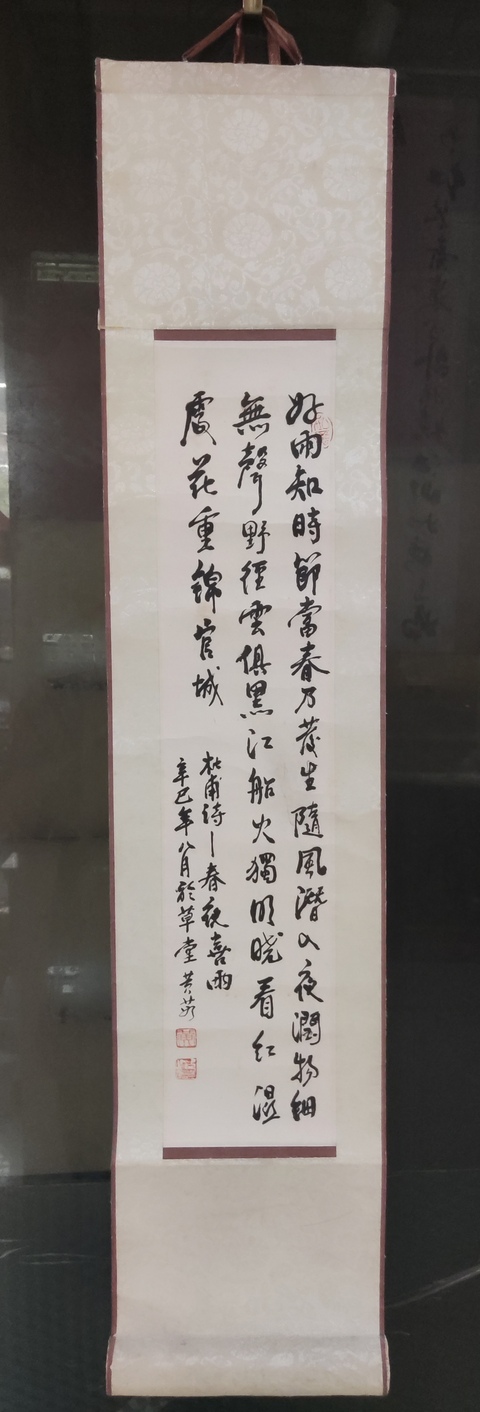 好雨知時節當春乃發生隨風潛入夜潤物細
無聲野徑雲俱黑江船火獨明曉看紅濕
處花重錦官城
杜甫詩—春夜喜雨
辛巳年八月於草堂